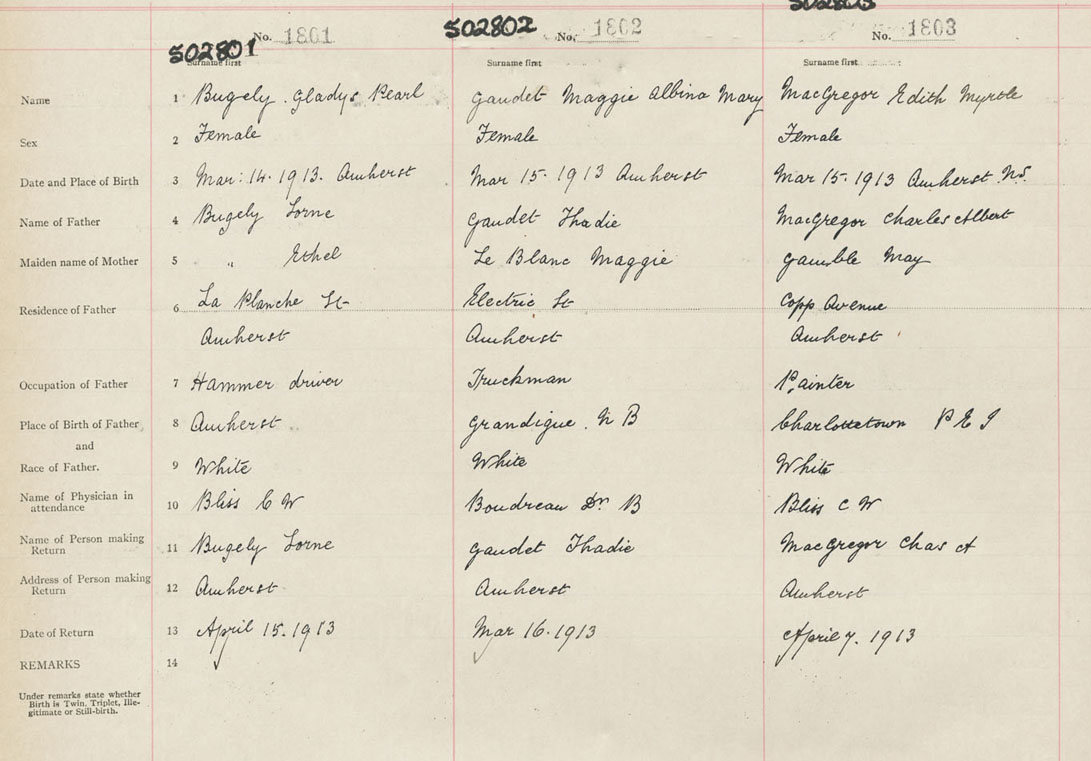 S02801 No. 1801 S02802 No. 1802 S02803 No. 1803
Surname first Surname first Surname first
Name 1 Bugely. Gladys Pearl Gaudet Maggie Albina Mary MacGregor Edith Myrtle
Sex 2 Female Female Female
Date and Place of Birth 3 Mar: 14. 1913. Amherst Mar 15. 1913 Amherst Mar 15. 1913 Amherst N.S.
Name of Father 4 Bugely Lorne Gaudet Thadie MacGregor Charles Albert
Maiden name of Mother 5 " Ethel Le Blanc Maggie Gamble May
Residence of Father 6 La Planche St Electric St Copp Avenue
Amherst Amherst Amherst
Occupation of Father 7 Hammer driver Truckman Painter
Place of Birth of Father 8 Amherst Grandigue. N B Charlottetown P E I
and
Race of Father. 9 White White White
Name of Physician in attendance 10 Bliss C W Boudreau Dr B Bliss C W
Name of Person making Return 11 Bugely Lorne Gaudet Thadie MacGregor Chas A
Address of Person making Return 12 Amherst Amherst Amherst
Date of Return 13 April 15. 1913 Mar 16. 1913 April 7. 1913
REMARKS 14
Under remarks state whether
Birth is Twin, Triplet, Ille-
gitimate or Still-birth.